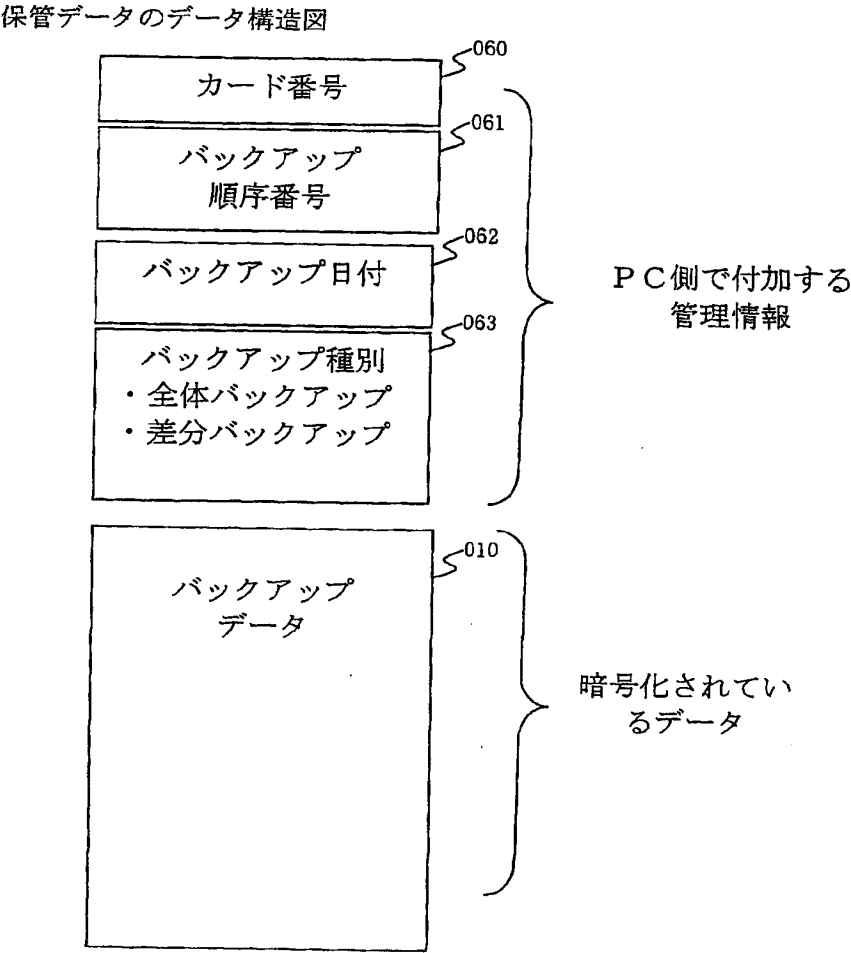 保管データのデータ構造図
060
カード番号
061
バックアップ
順序番号
062
バックアップ日付
063
バックアップ種別
・全体バックアップ
・差分バックアップ
ＰＣ側で付加する
管理情報
010
バックアップ
データ
暗号化されてい
るデータ